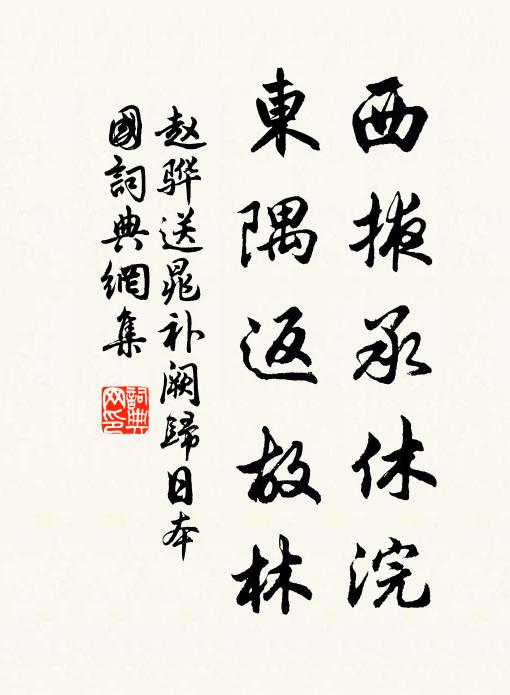 西掖承休浣
東隅返故林
赵骅送晁补阙歸日本
國詞典網集
詞典网印